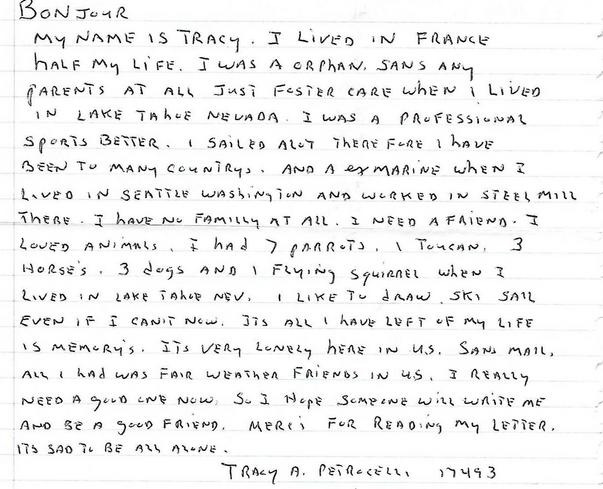 BONJOUR
MY NAME IS TRACY. I LIVED IN FRANCE
HALF MY LIFE. I WAS A ORPHAN. SANS ANY
PARENTS AT ALL JUST FOSTER CARE WHEN I LIVED
IN LAKE TAHOE NEVADA. I WAS A PROFESSIONAL
SPORTS BETTER. I SAILED ALOT THERE FORE I HAVE
BEEN TO MANY COUNTRYS. AND A EX MARINE WHEN I
LIVED IN SEATTLE WASHINGTON AND WORKED IN STEEL MILL
THERE. I HAVE NO FAMILLY AT ALL. I NEED A FRIEND. I
LOVED ANIMALS. I HAD 7 PARROTS. 1 TOUCAN. 3
HORSE'S. 3 DOGS AND 1 FLYING SQUIRREL WHEN I
LIVED IN LAKE TAHOE NEV. I LIKE TO DRAW. SKI SAIL
EVEN IF I CAN'T NOW. ITS ALL I HAVE LEFT OF MY LIFE
IS MEMORY'S. ITS VERY LONELY HERE IN U.S. SANS MAIL.
ALL I HAD WAS FAIR WEATHER FRIENDS IN U.S. I REALLY
NEED A GOOD ONE NOW. SO I HOPE SOMEONE WILL WRITE ME
AND BE A GOOD FRIEND. MERCI FOR READING MY LETTER.
ITS SAD TO BE ALL ALONE.
TRACY A. PETROCELLI 17493